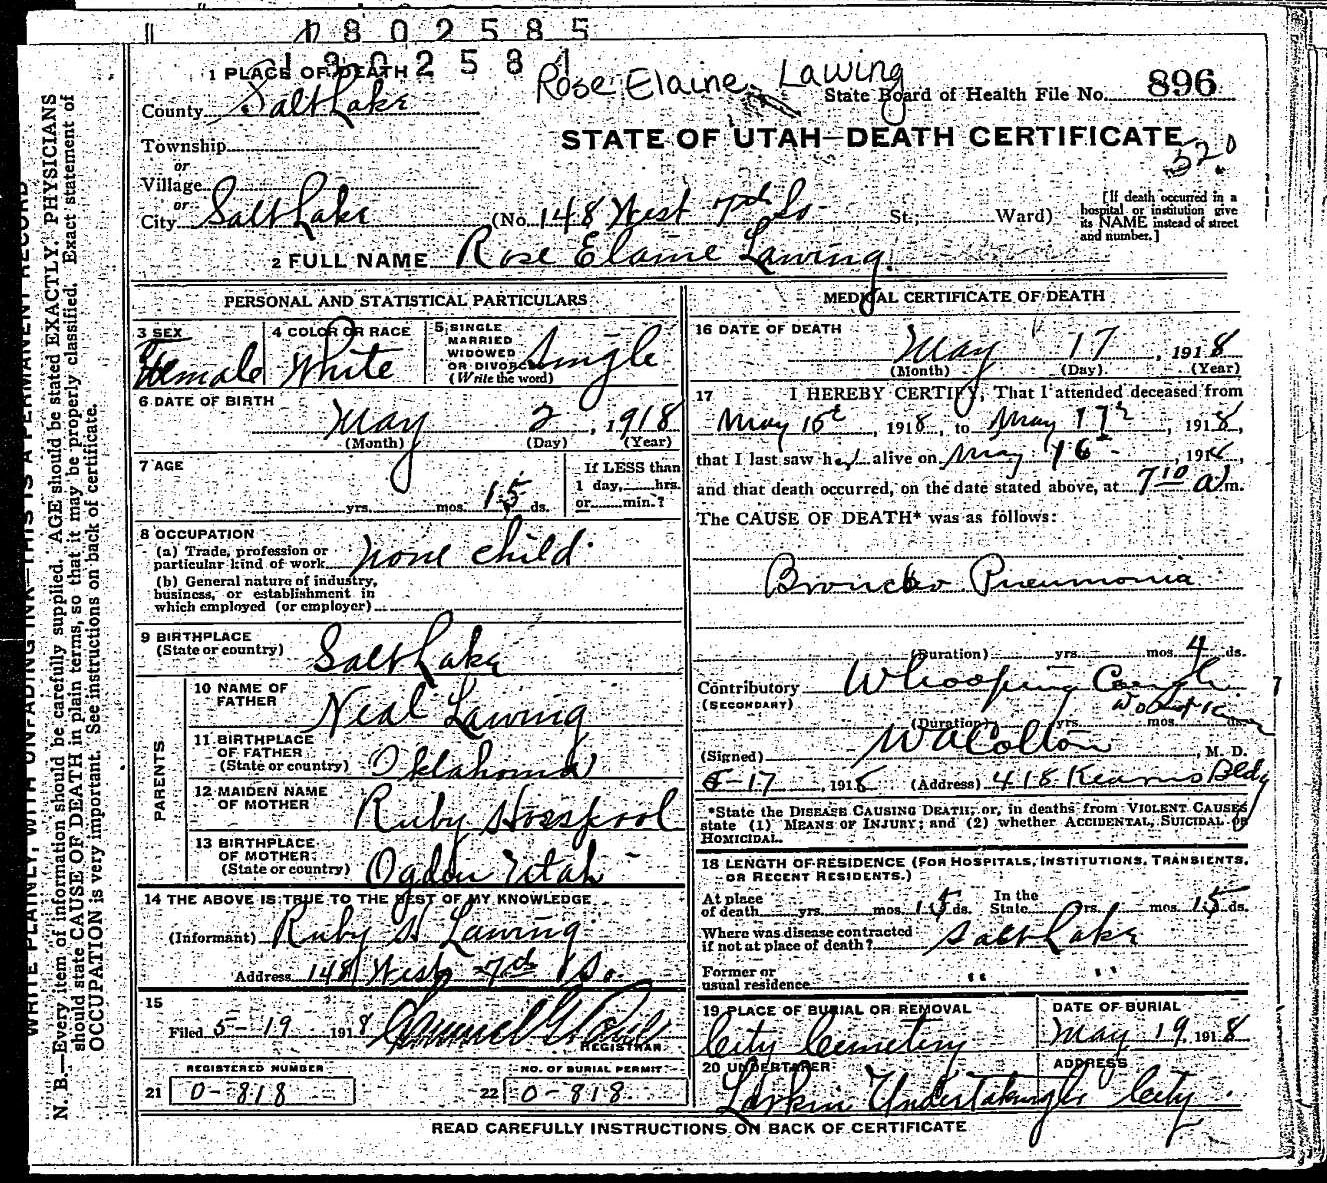 1802585
1802584
Rose Elaine Lawing
1 PLACE OF DEATH
County Salt Lake
State Board of Health File No. 896
Township
STATE OF UTAH—DEATH CERTIFICATE
520
or
Village
or
City Salt Lake (No. 148 West 7th So St.; Ward)
[If death occurred in a hospital or institution give its NAME instead of street and number.]
2 FULL NAME Rose Elaine Lawing
PERSONAL AND STATISTICAL PARTICULARS
3 SEX
Female
4 COLOR OR RACE
White
5 SINGLE
MARRIED
WIDOWED
OR DIVORCED
(Write the word)
Single
6 DATE OF BIRTH
May 2, 1918
(Month) (Day) (Year)
7 AGE
yrs. mos. 15 ds.
If LESS than
1 day, hrs.
or min.?
8 OCCUPATION
(a) Trade, profession or
particular kind of work none child
(b) General nature of industry,
business, or establishment in
which employed (or employer)
9 BIRTHPLACE
(State or country) Salt Lake
PARENTS
10 NAME OF
FATHER Neal Lawing
11 BIRTHPLACE
OF FATHER
(State or country) Oklahoma
12 MAIDEN NAME
OF MOTHER Ruby Horspool
13 BIRTHPLACE
OF MOTHER
(State or country) Ogden Utah
14 THE ABOVE IS TRUE TO THE BEST OF MY KNOWLEDGE
(Informant) Ruby H Lawing
Address 148 West 7th So.
15
Filed 5-19 1918
REGISTRAR
REGISTERED NUMBER
21 0-818
NO. OF BURIAL PERMIT
22 0-818
MEDICAL CERTIFICATE OF DEATH
16 DATE OF DEATH
May 17, 1918
(Month) (Day) (Year)
17 I HEREBY CERTIFY, That I attended deceased from
May 15th, 1918, to May 17th, 1918,
that I last saw her alive on May 16, 1918,
and that death occurred, on the date stated above, at 7 10 a m.
The CAUSE OF DEATH* was as follows:
Broncho Pneumonia
(Duration) yrs. mos. 4 ds.
Contributory Whooping Cough
(SECONDARY)
(Duration) yrs. mos. ds.
(Signed) W A Colton, M. D.
5-17, 1918 (Address) 418 Kearns Bldg
*State the DISEASE CAUSING DEATH; or, in deaths from VIOLENT CAUSES
state (1) MEANS OF INJURY; and (2) whether ACCIDENTAL, SUICIDAL or
HOMICIDAL.
18 LENGTH OF RESIDENCE (FOR HOSPITALS, INSTITUTIONS, TRANSIENTS,
OR RECENT RESIDENTS.)
At place
of death yrs. mos. 15 ds. In the State yrs. mos. 15 ds.
Where was disease contracted
if not at place of death? Salt Lake
Former or
usual residence " "
19 PLACE OF BURIAL OR REMOVAL
City Cemetery
DATE OF BURIAL
May 19, 1918
20 UNDERTAKER
Larkin Undertaking Co
ADDRESS
City
READ CAREFULLY INSTRUCTIONS ON BACK OF CERTIFICATE
WRITE PLAINLY, WITH UNFADING INK—THIS IS A PERMANENT RECORD
N. B.—Every item of information should be carefully supplied. AGE should be stated EXACTLY. PHYSICIANS
should state CAUSE OF DEATH in plain terms, so that it may be properly classified. Exact statement of
OCCUPATION is very important. See instructions on back of certificate.